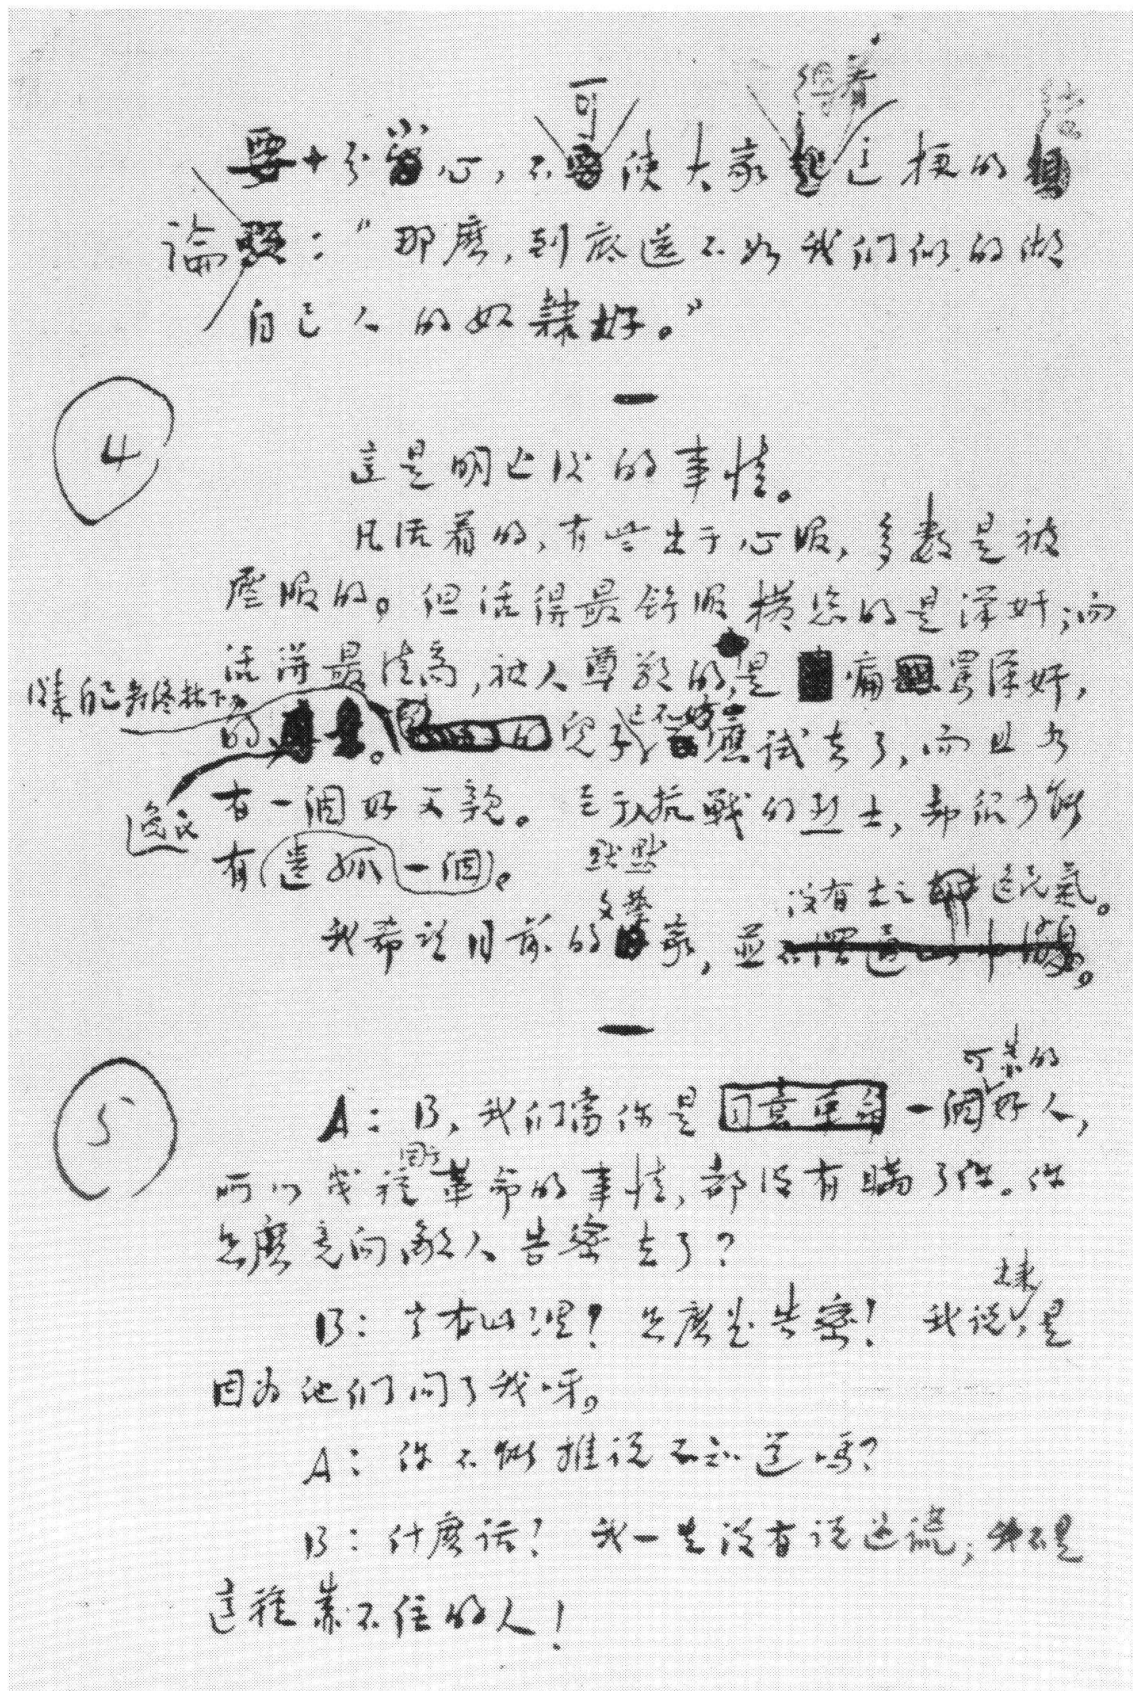 要十分小心,不可使大家得着這樣的結
論:“那麽,到底還不如我们似的做
自己人的奴隸好。”
4
這是明亡後的事情。
凡活着的,有些出于心服,多数是被
壓服的。但活得最舒服横恣的是漢奸;而
活得最清高,被人尊敬的,是痛罵漢奸
的逸民。後來自己壽終林下,兒子已不妨應試去了,而且各
有一個好父親。至于默默抗戰的烈士,却很少能
有一個遺孤。
我希望目前的文藝家,並没有古之逸民氣。
5
A:B,我们當你是一個可靠的好人,
所以幾種関于革命的事情,都没有瞞了你。你
怎麽竟向敵人告密去了?
B:豈有此理!怎麽是告密!我说出來,是
因为他们问了我呀。
A:你不能推说不知道嗎?
B:什麽话!我一生没有说过谎,我不是
這種靠不住的人!